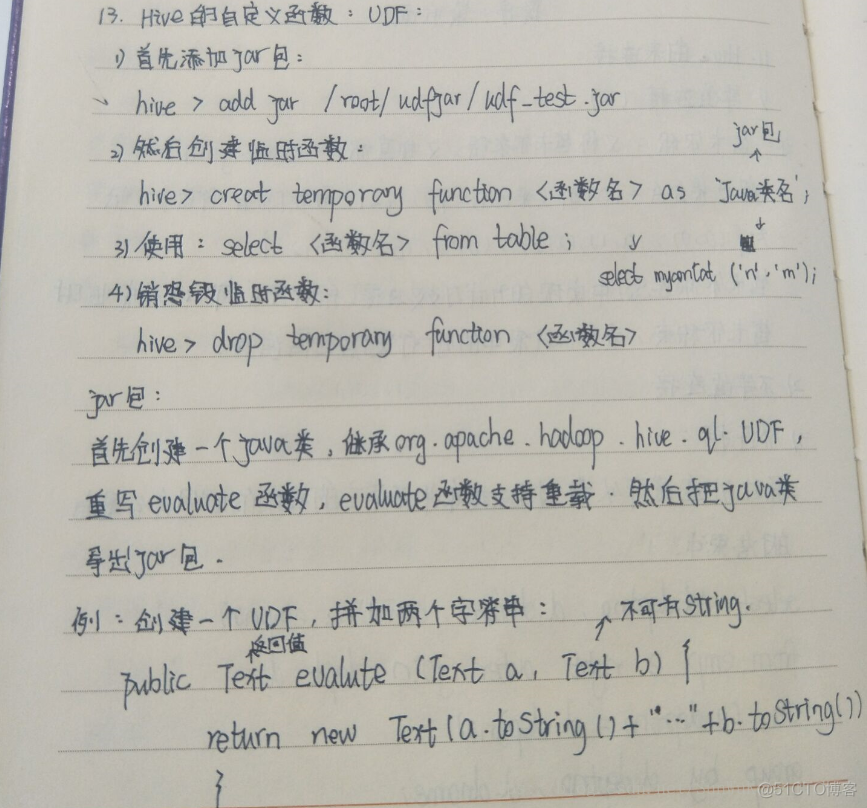 13. Hive的自定义函数：UDF：
1) 首先添加jar包：
hive > add jar /root/udfjar/udf_test.jar
jar包
2) 然后创建临时函数：
hive> creat temporary function <函数名> as 'java类名';
3) 使用：select <函数名> from table ;
select myconcat ('n','m');
4) 销毁临时函数：
hive > drop temporary function <函数名>
jar包：
首先创建一个java类，继承org.apache.hadoop.hive.ql.UDF，
重写evaluate函数，evaluate函数支持重载．然后把java类
导出jar包．
例：创建一个UDF，拼加两个字符串： 不可为String.
返回值
public Text evalute (Text a, Text b) {
return new Text(a.toString()+"..."+b.toString())
}
@51CTO博客